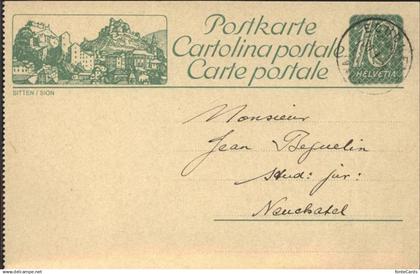 Postkarte
Cartolina postale
Carte postale
10
HELVETIA
SITTEN / SION
Monsieur
Jean Béguelin
stud: jur:
Neuchatel